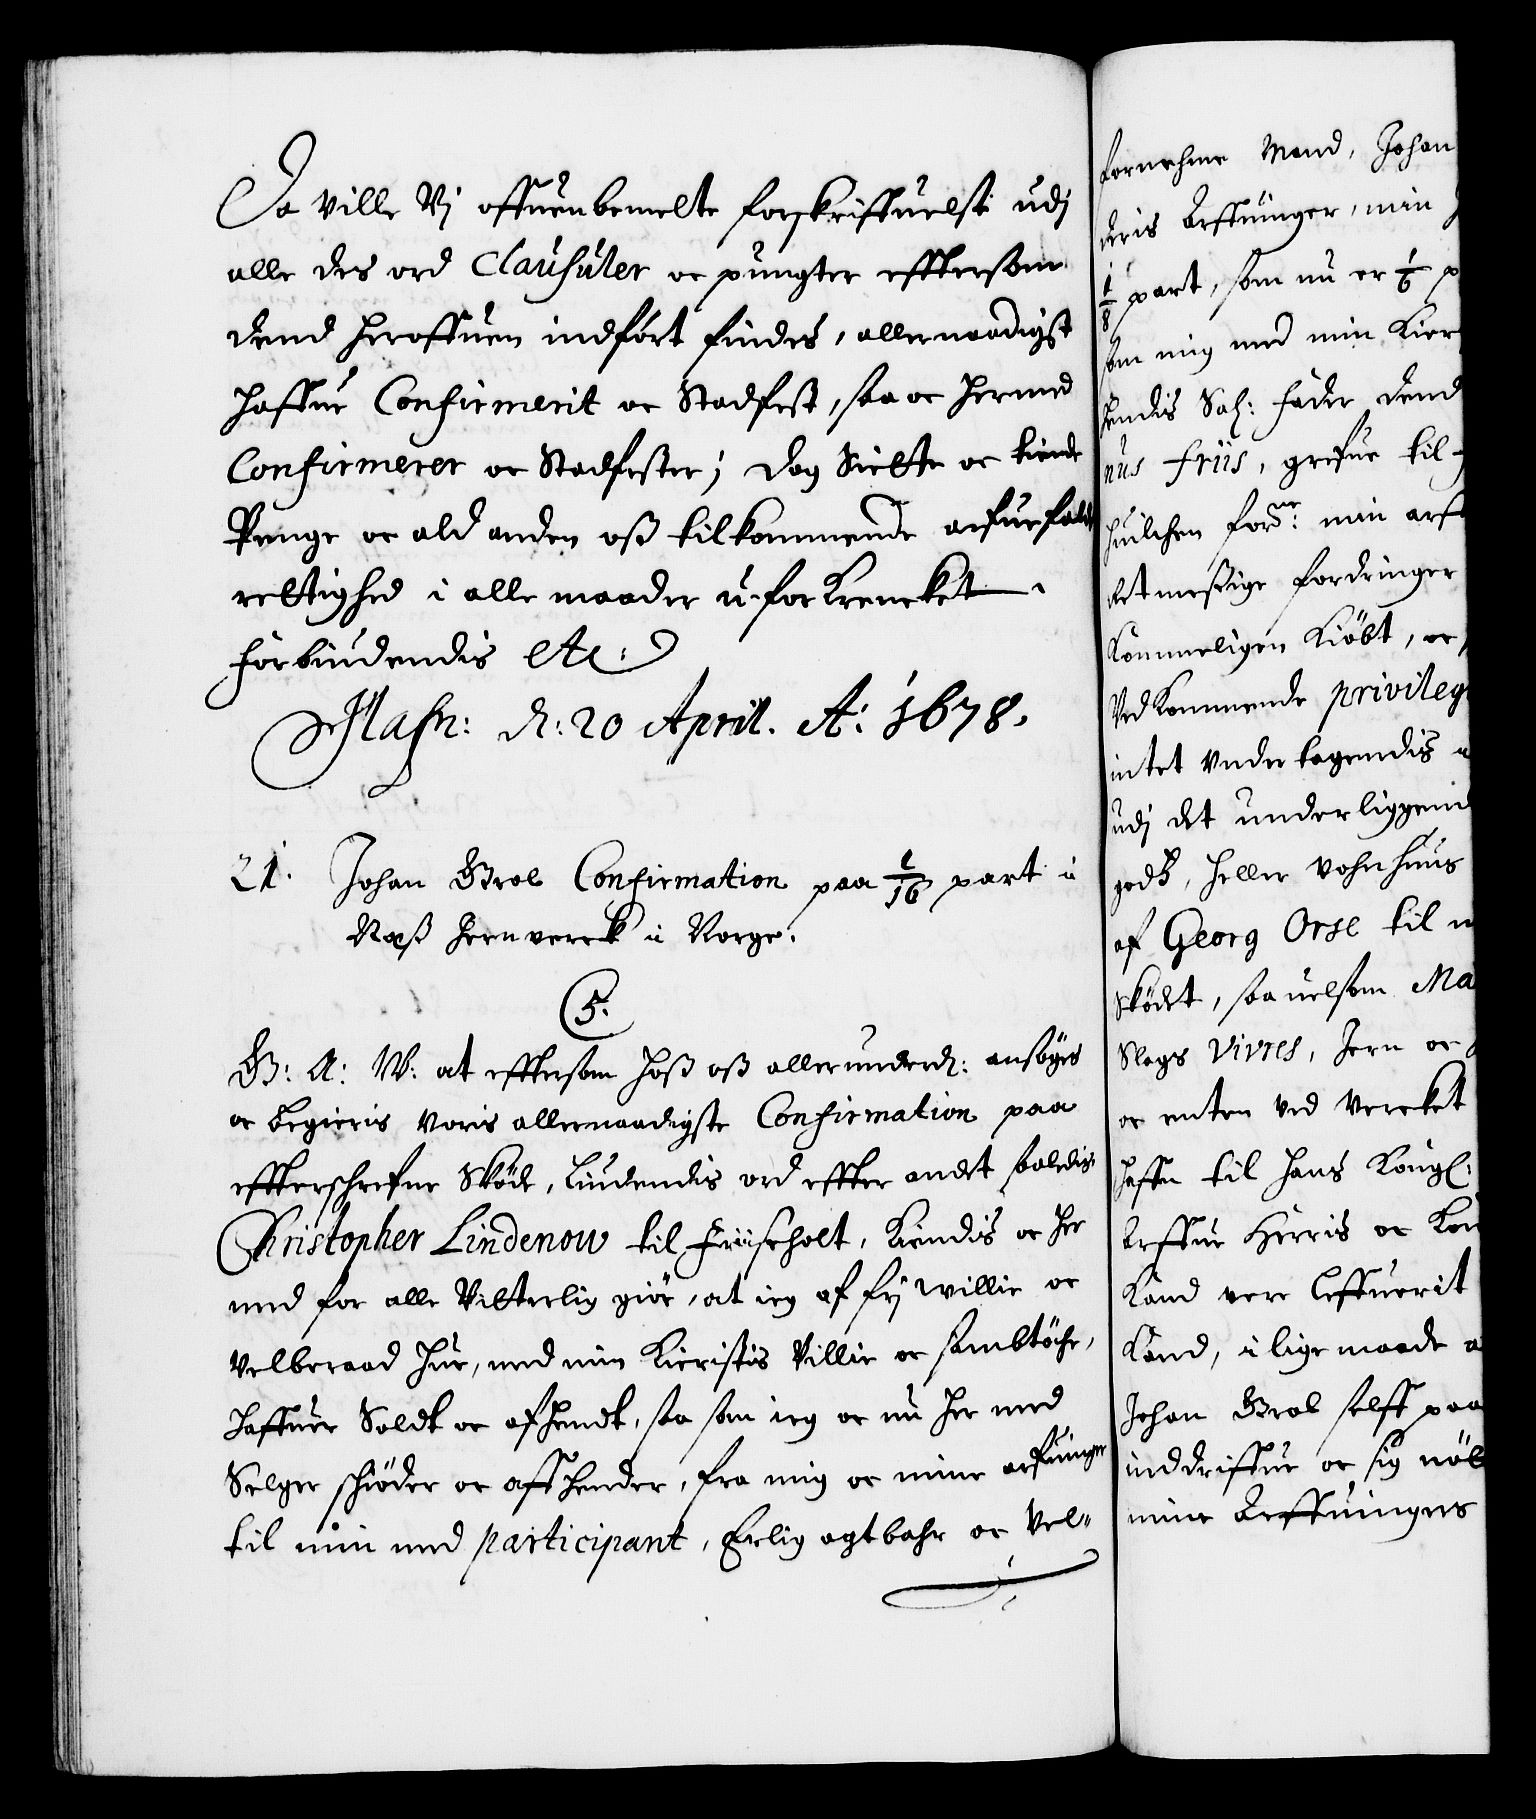 Da ville Vj offuenbemelte forskriffuelse udj
alle des ord Clausuler oc pungter efftersom
dend heroffuen indført findes, allernaadigst
haffue Confirmerit oc Stadfest, saa oc hermed
Confirmerer oc Stadfester; dog Siette oc tiende
Penge oc ald anden oß tilkommende arfuefalds
rettighed i alle maader u-forkrencket
forbindendis etc:
Hafn: d: 20 April. Aº 1678.
21. Johan Brol Confirmation paa 1/16 part i
Naß Jernverck i Norge.
5.
G: A: W: at eftersom hoß oß allerunderd: ansøges
oc begieris voris allernaadigste Confirmation paa
effterschrefne Skøde, liudendis ord effter andet saaledis
Christopher Lindenow til Friiseholt, Kiendis oc her
med for alle Vitterlig giør, at ieg af frj willie oc
velberaad hue, med min Kieristis Villie oc sambtøche,
haffuer Soldt oc afhendt, saa som ieg oc nu her med
Selger schiøder oc affhender, fra mig oc mine arfuinger
til min med participant, Erlig agtbahr oc Vel-
fornehme Mand, Johan
deris Arffuinger, min
1/8 part, som nu er 1/6 p
som mig med min Kier
hendis Sal: fader dend
nus Friis, grefue til
huilchen for.ne: min arf
retmessige fordringer
Kommeligen Kiøbt, oc
Vedkommende privileg
intet undertagendis
udj det underliggend
godß, heller vohnhuus
af Georg Orse til
Skødet, saauelsom Ma
Slags Vivres, Jern oc
oc enten ved Vercket
haffn til Hans Kongl:
Arffue Herris oc Kon
Kand vere leffuerit
Kand, i lige maade
Johan Brol selff paa
inddriffue oc sig
mine Arffuingers